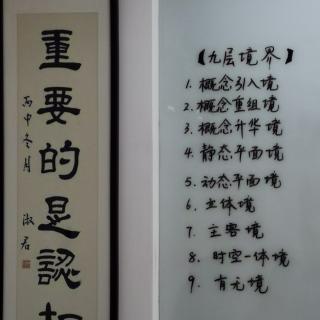 重要的是認
丙申冬月
淑君
【九层境界】
1. 概念引入境
2. 概念重组境
3. 概念升华境
4. 静态平面境
5. 动态平面境
6. 立体境
7. 主客境
8. 时空一体境
9. 有元境